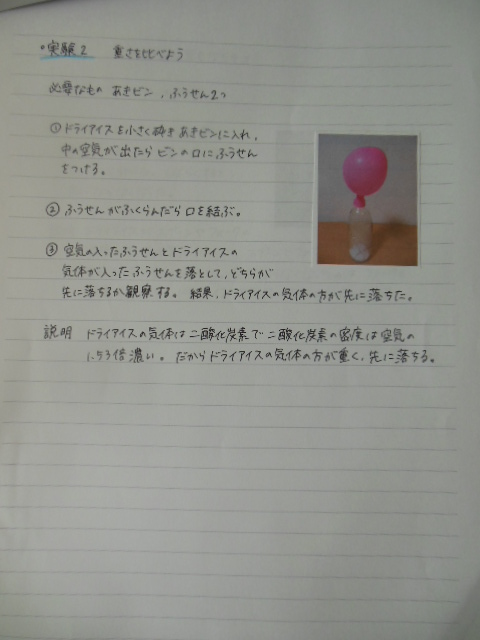 ・実験2 重さを比べよう
必要なもの あきビン、ふうせん2つ
①ドライアイスを小さく砕きあきビンに入れ、
中の空気が出たらビンの口にふうせん
をつける。
②ふうせんがふくらんだら口を結ぶ。
③空気の入ったふうせんとドライアイスの
気体が入ったふうせんを落として、どちらが
先に落ちるか観察する。結果、ドライアイスの気体の方が先に落ちた。
説明 ドライアイスの気体は二酸化炭素で二酸化炭素の密度は空気の
1.53倍濃い。だからドライアイスの気体の方が重く、先に落ちる。